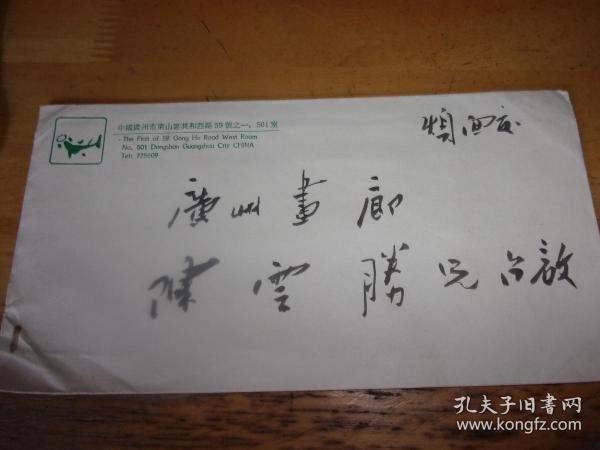 中國廣州市東山區共和西路59號之一，501室
The Firm of 59 Gong Ho Road West Room
No, 501 Dongshan Guangzhou City CHINA
Teh 775609
面交
廣州畫廊
陳雲勝兄台啟
孔夫子旧书网
www.kongfz.com